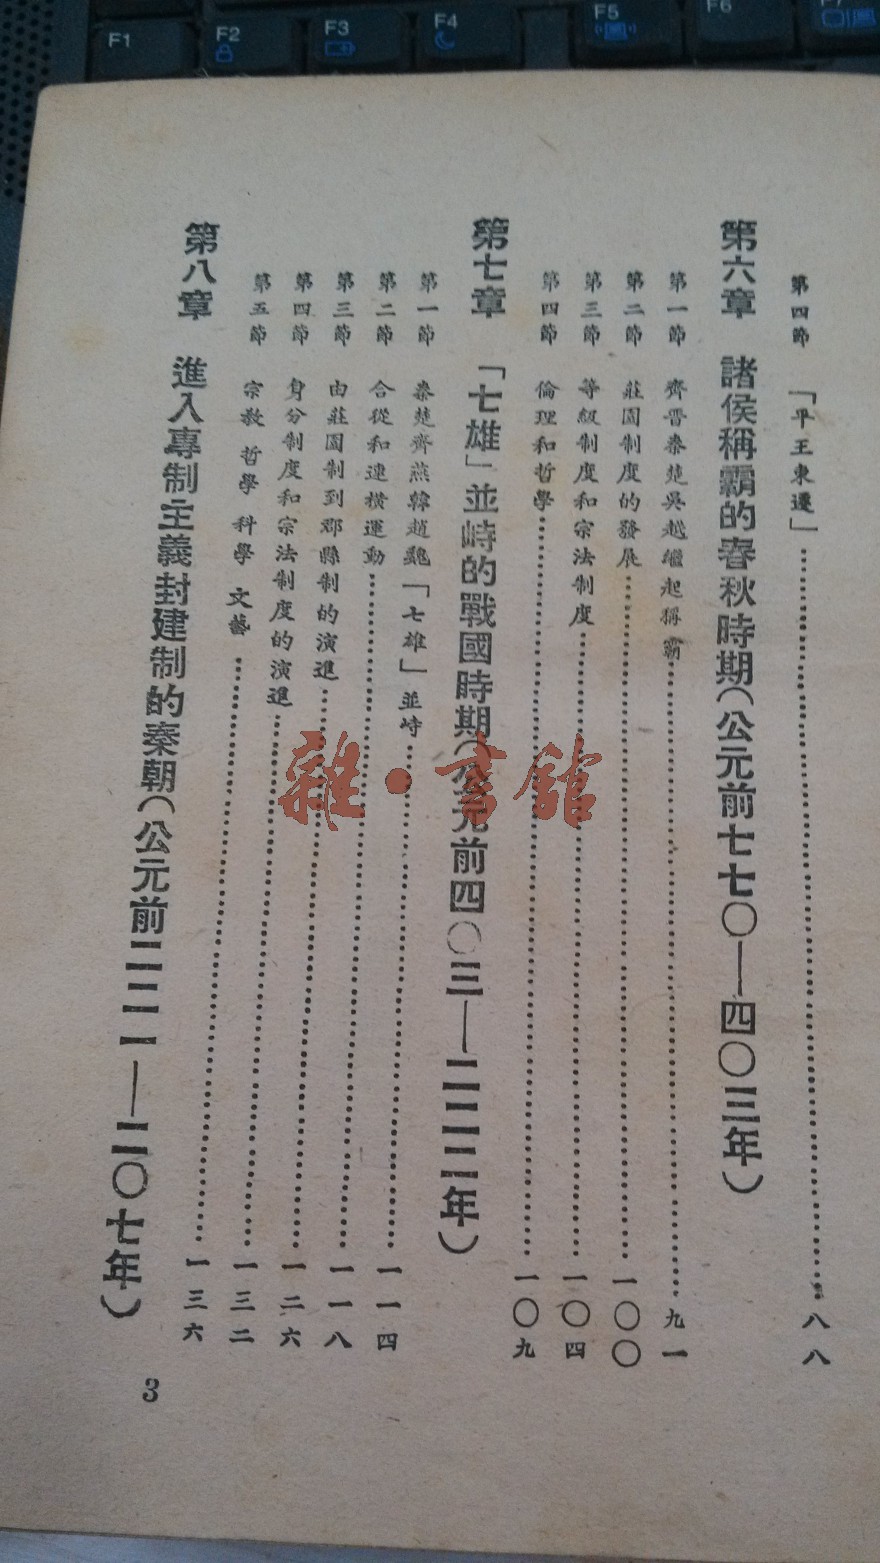 F1
F2
F3
F4
F5
F6
F7
第四節 「平王東遷」 八八
第六章 諸侯稱霸的春秋時期(公元前七七〇—四〇三年)
第一節 齊晉秦楚吳越繼起稱霸 九一
第二節 莊園制度的發展 一〇〇
第三節 等級制度和宗法制度 一〇四
第四節 倫理和哲學 一〇九
第七章 「七雄」並峙的戰國時期(公元前四〇三—二二二年)
第一節 秦楚齊燕韓趙魏「七雄」並峙 一一四
第二節 合從和連橫運動 一一八
第三節 由莊園制到郡縣制的演進 一二六
第四節 身分制度和宗法制度的演進 一三二
第五節 宗教 哲學 科學 文藝 一三六
第八章 進入專制主義封建制的秦朝(公元前二二一—二〇七年)
3
雜·書館